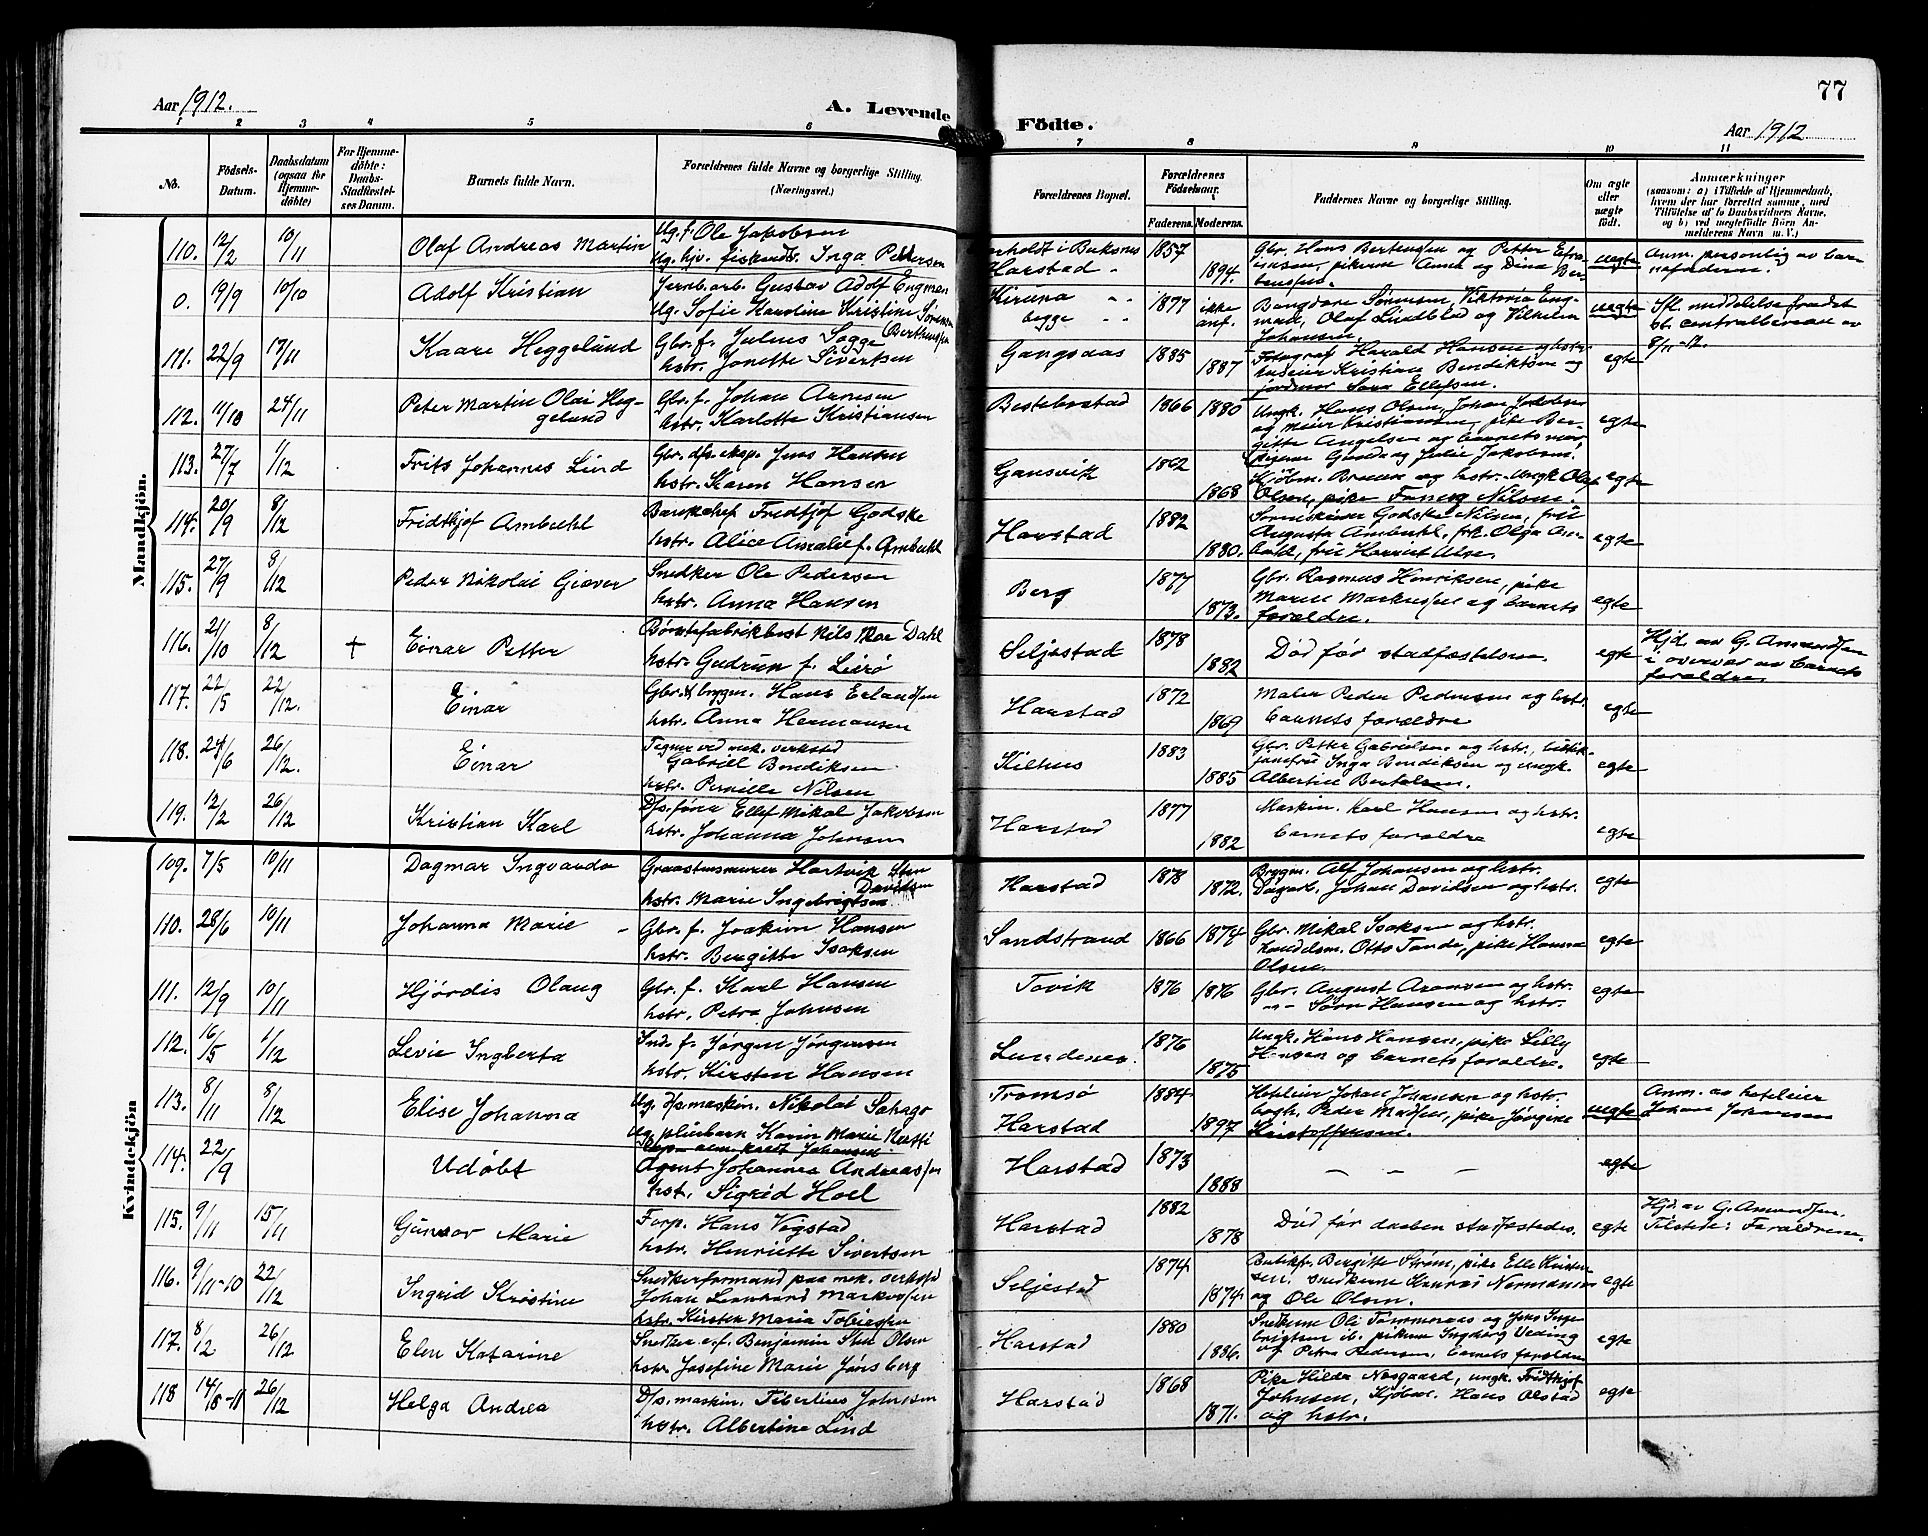 77
Aar 1912.
A. Levende
Födte.
Aar 1912
1 2 3 4 5 6 7 8 9 10 11
No.
Födsels-Datum.
Daabsdatum (ogsaa for Hjemme-döbte)
For Hjemme-döbte: Daabs-Stadfæstel-ses Datum.
Barnets fulde Navn.
Forældrenes fulde Navne og borgerlige Stilling. (Næringsvei.)
Forældrenes Bopæl.
Forældrenes Födselsaar.
Faderens. Moderens.
Faddernes Navne og borgerlige Stilling.
Om ægte eller uægte født.
Anmærkninger
(saasom: a) i Tilfælde af Hjemmedaab,
hvem der har forrettet samme, med
Tilföielse af to Daabsvidners Navne,
og b) ved uægtefødte Börn An-
melderens Navn m. V.)
Mandkjön.
110. 12/2 10/11 Olaf Andreas Martin
Ug. f. Ole Jakobsen
Ug. hjv. fiskend. Inga Pettersen
i Buksnes
Harstad
1857 1894.
Gbr. Hans Bertensen og Petter
pikerne Anna og Dina
uegte
Anm. personlig av barnefaderen.
0. 19/9 10/10 Adolf Kristian
Jernb.arb. Gustav Adolf Engman
Ug. Sofie Hardine Kristine Sørensen
Kiruna
begge
1877 ikke anf.
Sørensen, Viktoria Eng-
man, Olaf Lindblad og Vilhelm
Johansen.
uegte
Ifl. middelelse fra det
st. centralbureau av
8/11-12.
111. 22/9 17/11 Kaare Heggelund
Gbr. f. Julius Sogge Berthensen
hstr. Jonette Sivertsen
Gangsaas
1885 1887
Fotograf Harald Hansen og hstr.
Kristian Bendiktsen og
jordmor Sara Ellefsen.
egte
112. 11/10 24/11 Peter Martin Olai Heg-
gelund
Gbr. f. Johan Arnesen
hstr. Karlotte Kristiansen
Bestebostad
1866 1880
Ungk. Hans Olsen, Johan Jakobsen
og Meier Kristiansen, pike Ber-
gitte Angelsen og barnets mor
egte
113. 27/7 1/12 Frits Johannes Lind
Gbr. d/s.eksp. Jens Hansen
hstr. Karen Hansen
Gansvik
1862 1868
pigerne Gunda og Julie Jakobsen.
Kjøbm. Bruun og hstr. Ungk. Olaf
Olsen, pike Fanny Nilsen.
egte
114. 20/9 8/12 Fridthjof Ambühl
Bankchef Fridtjof Godske
hstr. Alice Amalie f. Ambühl
Harstad
1882 1880.
Godske Nilsen, frü
Augusta Ambühl, frk. Olga Am-
bühl, frü Harriet
egte
115. 27/9 8/12 Peder Nikolai Giæver
Snedker Ole Pedersen
hstr. Anna Hansen
Berg
1877 1873.
Gbr. Rasmus Henriksen, pike
Maren Markussen og barnets
forældre.
egte
116. 21/10 8/12 + Einar Petter
Børstefabrikbest. Nils Moe Dahl
hstr. Gudrun f. Lerø
Seljestad
1878 1882
Død før stadfæstelsen.
egte
Hjd. av G. Amundsen
i overvær av barnets
forældre
117. 22/5 22/12. Einar
Gbr. & byggm. Hans Erlandsen
hstr. Anna Hermansen
Harstad
1872 1869
Maler Peder Pedersen og hstr.
barnets forældre
egte
118. 24/6 26/12. Einar
Tegner ved mek. verksted
Gabriell Bendiksen
hstr. Pernille Nilsen
Kilhus
1883 1885
Gbr. Petter Gabrielsen og hstr., butik-
Inga Bendiksen og ungk.
Albertin Bertelsen.
egte
119. 12/2 26/12 Kristian Karl
D/s.fører Ellef Mikal Jakobsen
hstr. Johanna Johnsen
Harstad
1877 1882
Maskin. Karl Hansen og hstr.
barnets forældre
egte
Kvindekjön
109. 7/5 10/11 Dagmar Ingvarda
Graastensmurer Hartvik Sten
Davidsen
hstr. Marie Ingebrigtsen
Harstad
1878 1872.
Byggm. Alf Johansen og hstr.
Dagarb. Johan Davidsen og hstr.
egte
110. 28/6 10/11 Johanna Marie
Gbr. f. Joakim Hansen
hstr. Bergitte Isaksen
Sandstrand
1866 1874
Gbr. Mikal Isaksen og hstr.
Handelsm. Otto Tande, pike Hanna
Olsen.
egte
111. 12/9 10/11 Hjørdis Olaug
Gbr. f. Karl Hansen
hstr. Petra Johnsen
Tovik
1876 1876
Gbr. August Aronsen og hstr.
-"- Sørn Hansen og hstr.
egte
112. 16/5 1/12 Levie Ingberta
Inds. f. Jørgen Jørgensen
hstr. Kirsten Hansen
Lundenes
1876 1875
Ungk. Hans Hansen, pike Lilly
Hansen og barnets forældre.
egte
113. 8/11 8/12 Elise Johanna
Ug. d/s maskin. Nikolai Schage
Karin Marie Nertti
Johansen
Tromsø
Harstad
1884 1897
Hoteleier Johan Johansen og hstr.
bogh. Peder Madsen, pike Jørgine
Kristoffersen.
uegte
Anm. av hoteleier
Johan Johansen
114. 22/9 Udøbt
Agent Johannes Andreassen
hst. Sigrid Hoel
Harstad
1873 1888
- - -
egte
115. 9/11 15/11 Gunvor Marie
Forp. Hans Vigstad
hstr. Henriette Sivertsen
Harstad
1882 1878
Død før daaben stadfæstedes.
egte
Hjd. av G. Amundsen.
Tilstede: Forældrene.
116. 9/11-10 22/12 Ingrid Kristine
Snedkerformand paa mek. verksted
Johan Leonhard Markussen
hstr. Kirsten Maria Tobiassen
Seljestad
1874 1874
Butikfr. Bergitte Strøm, pike Elle Kristen-
sen, snedkerne Konrad Normann
og Ole Olsen.
egte
117. 8/2 26/12 Elen Katarine
Snedker e.f. Benjamin Sten Olsen
hstr. Josefine Marie Jensberg
Harstad
1880 1886.
Snedkerne Ole og Jens Inge-
brigtsen ib. pikerne Ingeborg
og Petra Pedersen, barnets forældre
egte
118 14/8-11 26/12 Helga Andrea
D/s. maskin. Tibertines Johnsen
hstr. Albertine Lind
Harstad
1868 1871.
Pike Hilda Nesgaard, ungk. Fridthjof
Johnsen, Kjøbm. Hans Olstad
og hstr.
egte